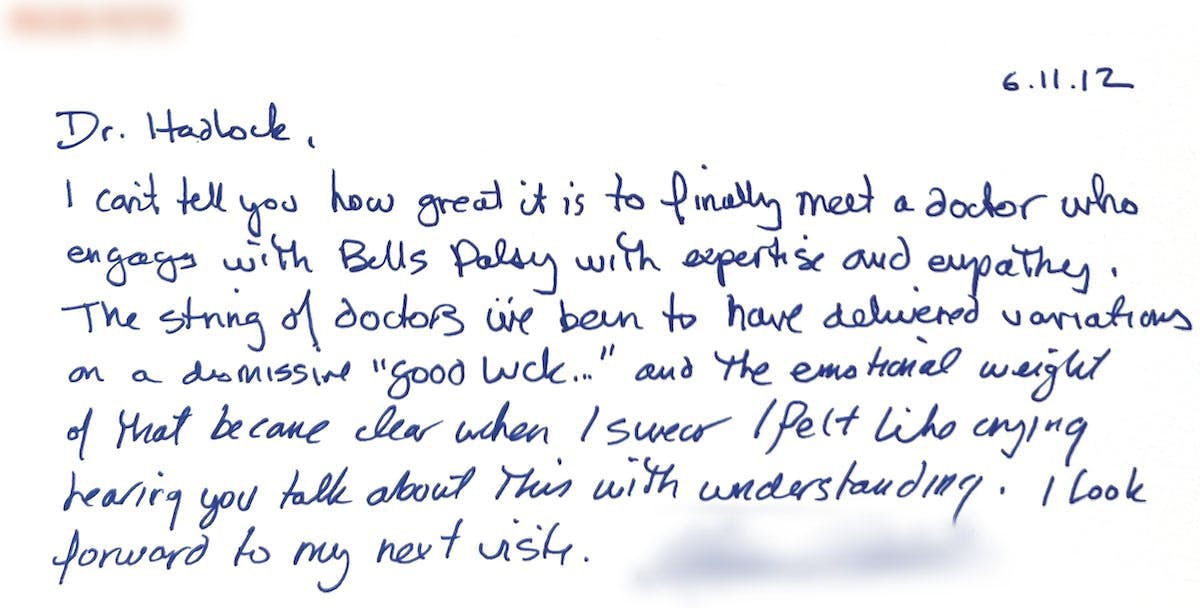 6.11.12
Dr. Hadlock,
I can't tell you how great it is to finally meet a doctor who
engages with Bells Palsy with expertise and empathy.
The string of doctors i've been to have delivered variations
on a dismissive "good luck..." and the emotional weight
of that became clear when I swear I felt like crying
hearing you talk about this with understanding. I look
forward to my next visit.